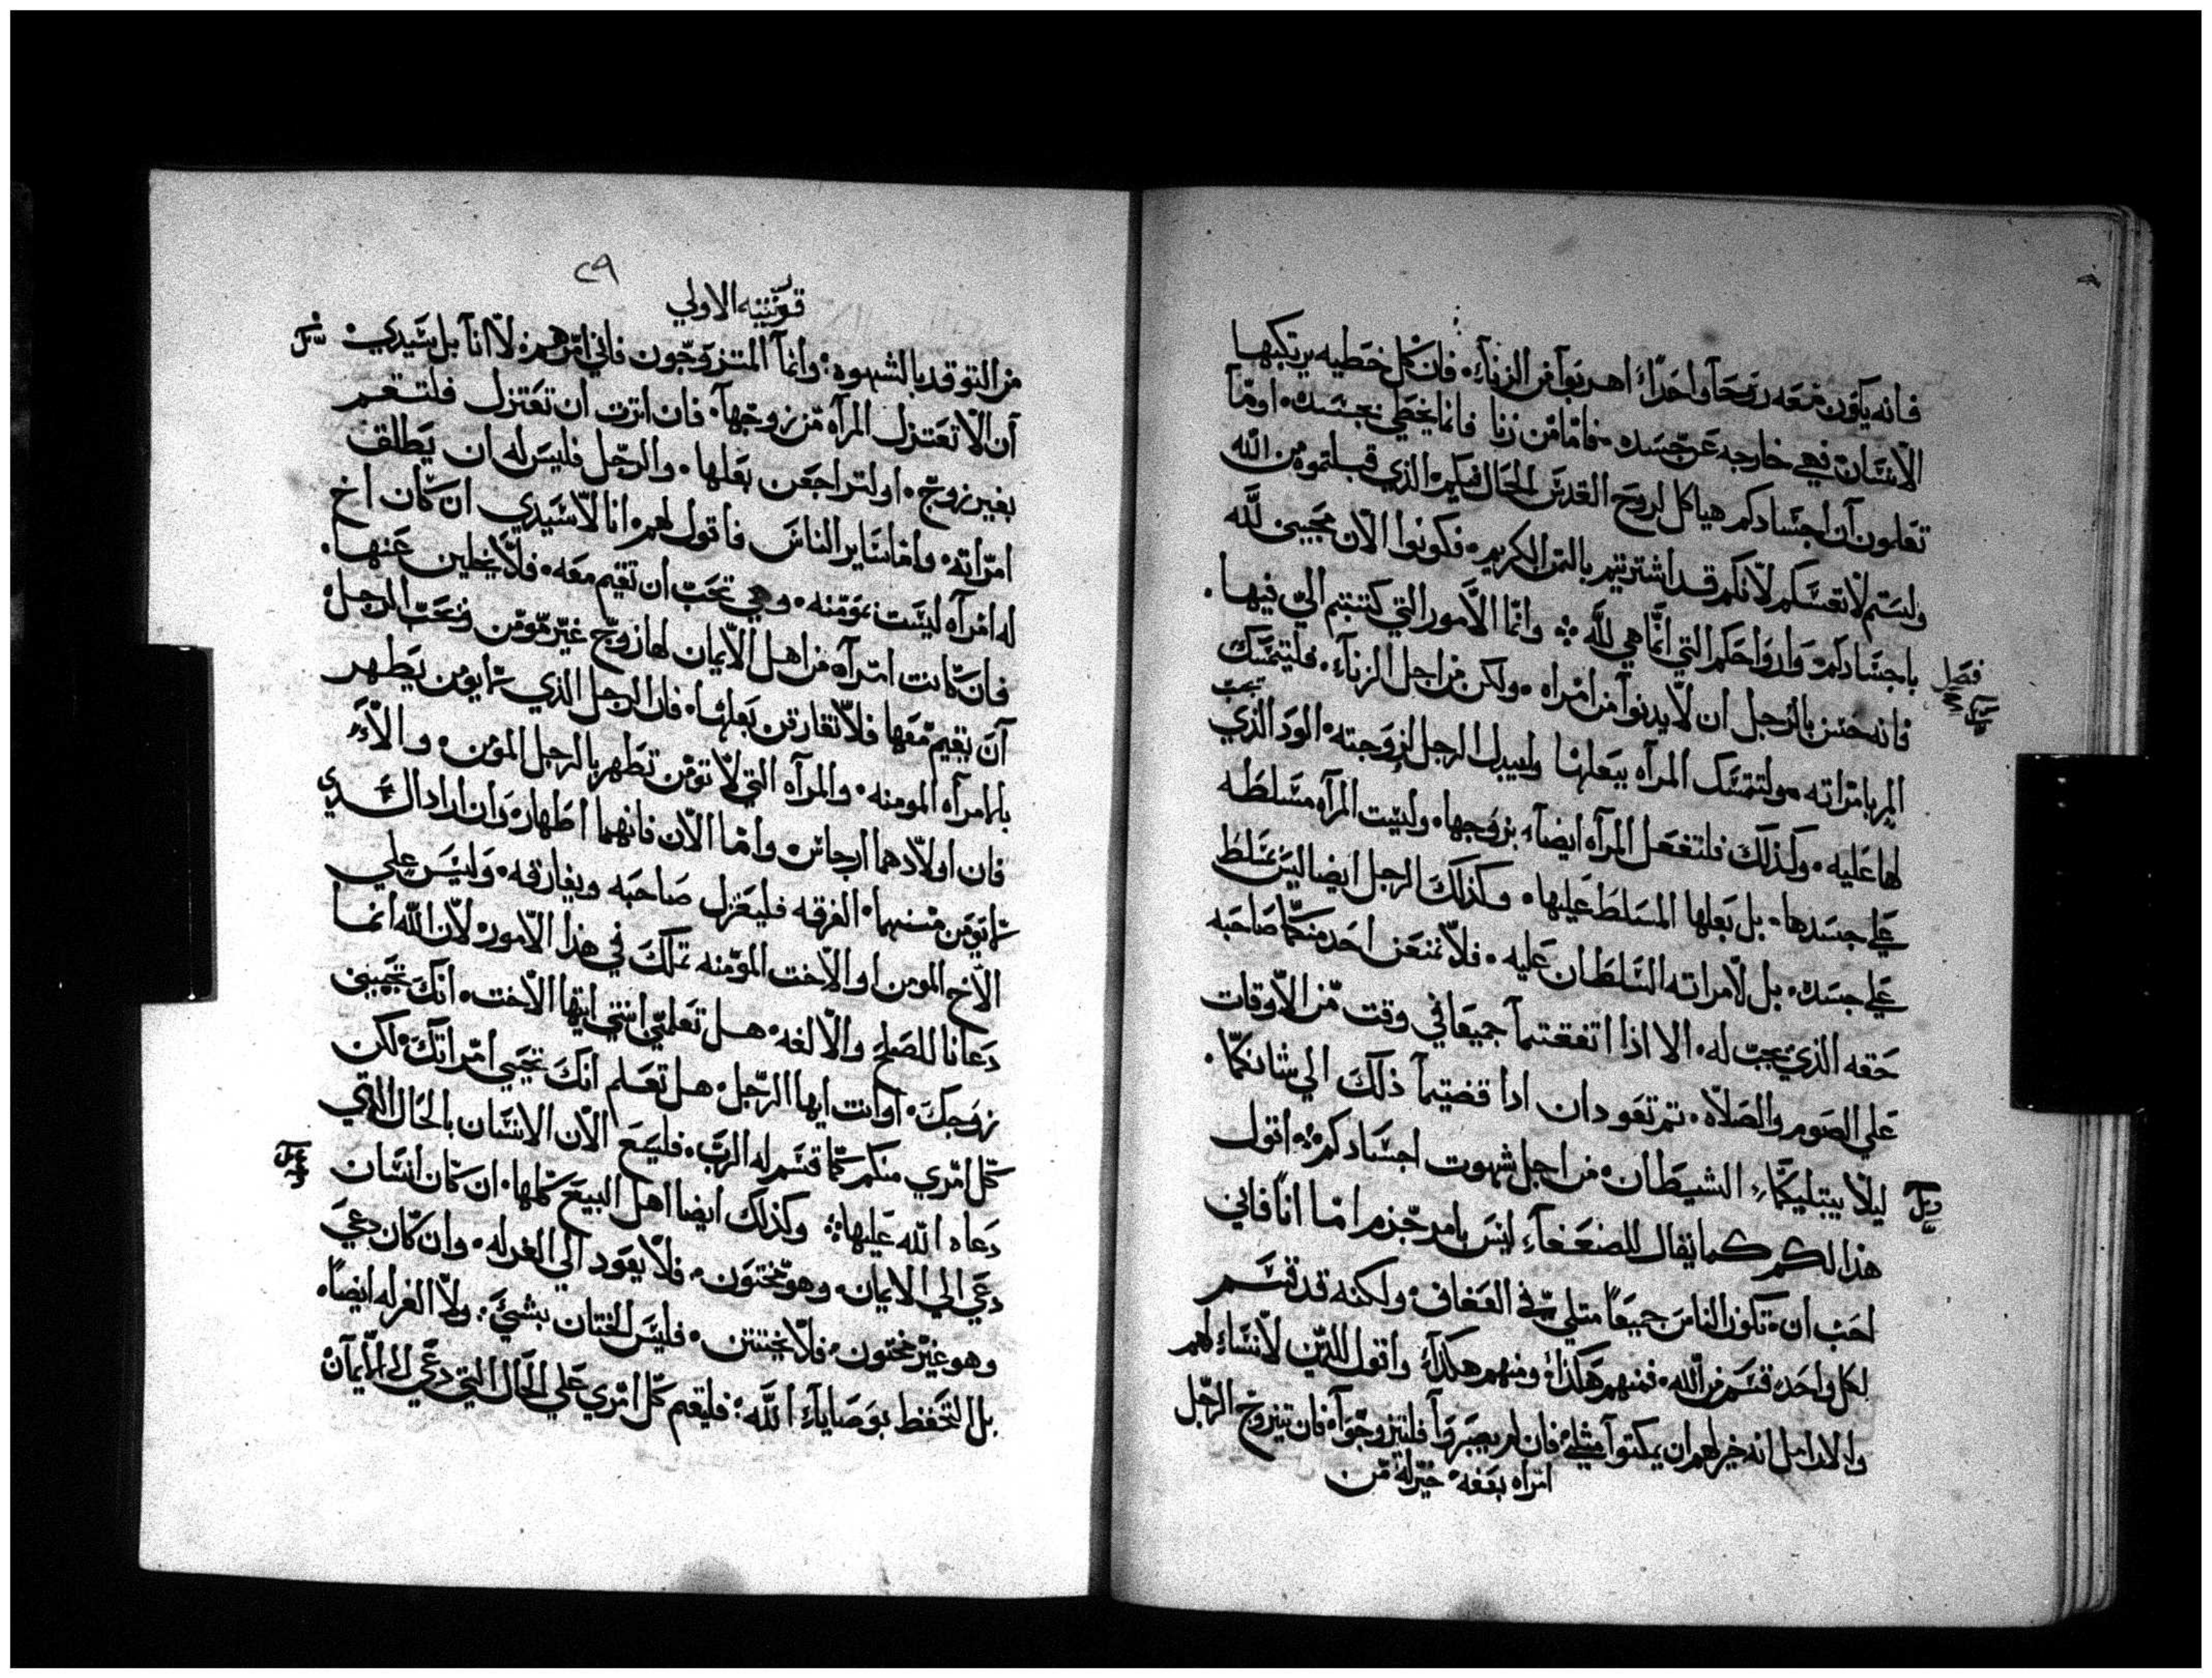 فانه يكون معه روحا واحدا اهربوا من الزناء فان كل خطيه يرتكبها
الانسان فهي خارجه عن جسده فاما من زنا فانما يخطي بجسده اوما
تعلمون ان اجسادكم هياكل لروح القدس الحال فيكم الذي قبلتموه من الله
ولستم لانفسكم لانكم قد اشتريتم بالثمن الكريم فكونوا الان مجيبين لله
باجسادكم وارواحكم التي انما هي لله وانما الامور التي كتبتم الي فيها
فصل
فانه حسن بالرجل ان لا يدنوا من امراه ولكن من اجل الزناء فليتمسك
المر بامراته ولتتمسك المراه ببعلها وليبدل الرجل لزوجته الود الذي
يجب
لها عليه وكذلك فلتفعل المراه ايضا بزوجها وليست المراه مسلطه
علي جسدها بل بعلها المسلط عليها وكذلك الرجل ايضا ليس مسلط
علي جسده بل لامراته السلطان عليه فلا تمنعن احد منكما صاحبه
حقه الذي يجب له الا اذا اتفقتما جميعا في وقت من الاوقات
علي الصوم والصلاه ثم تعودان اذا قضيتما ذلك الي شانكما
ليلا يبتليكما الشيطان من اجل شهوت اجسادكم اقول
هذا لكم كما يقال للضعفاء ليس بامر جزم اما انا فاني
احب ان تكون الناس جميعا مثلي في العفاف ولكنه قد قسم
لكل واحد قسم من الله فمنهم هكذا ومنهم هكذا واقول للذين لا نساء لهم
والارامل انه خير لهم ان يمكثوا مثلي فان لم يصبروا فليتزوجوا فان تزوج الرجل
امراه بعفه خير له من
٢٩
قرنتيه الاولي
من التوقد بالشهوه وانما المتزوجون فاني امرهم لا انا بل سيدي
ان لا تعتزل المراه من زوجها فان اثرت ان تعتزل فلتقم
بغير زوج او لتراجعن بعلها والرجل فليس له ان يطلق
امراته واما ساير الناس فاقول لهم انا لا سيدي ان كان اخ
له امراه ليست بمومنه وهي تحب ان تقيم معه فلا يخلين عنها
فان كانت امراه من اهل الايمان لها زوج غير مومن ويحب الرجل
ان يقيم معها فلا تفارقن بعلها فان الرجل الذي لا يومن يطهر
بالمراه المومنه والمراه التي لا تومن تطهر بالرجل المومن والا
فان اولادهما ارجاس واما الان فانهما اطهار وان اراد الذي
لا يومن منهما الفرقه فليعتزل صاحبه ويفارقه وليس علي
الاخ المومن او الاخت المومنه تملك في هذا الامور لان الله انما
دعانا للصلح والالفه هل تعلمي انتي ايتها الاخت انك تحيين
زوجك او انت ايها الرجل هل تعلم انك تحيي امراتك لكن
كل امري منكم كما قسم له الرب فليسع الان الانسان بالحال التي
دعاه الله عليها وكذلك ايضا اهل البيع كلها ان كان انسان
دعي الي الايمان وهو مختون فلا يعود الي الغرله وان كان دعي
وهو غير مختون فلا يختتن فليس الختان بشي ولا الغرله ايضا
بل التحفظ بوصايا الله فليقم كل امري علي الحال التي دعي الي الايمان